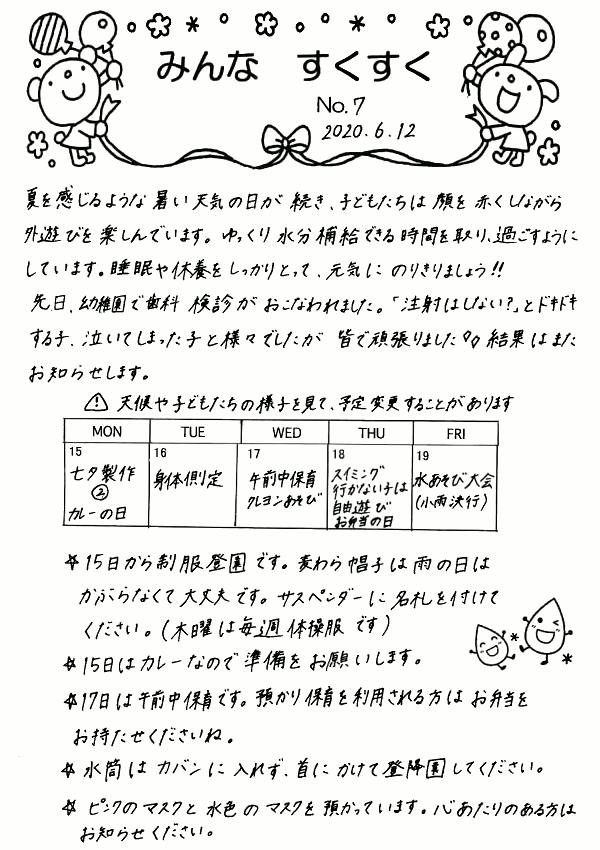 みんな すくすく
No.7
2020.6.12
夏を感じるような暑い天気の日が続き、子どもたちは顔を赤くしながら
外遊びを楽しんでいます。ゆっくり水分補給できる時間を取り、過ごすように
しています。睡眠や休養をしっかりとって、元気にのりきりましょう!!
先日、幼稚園で歯科検診がおこなわれました。「注射はしない?」とドキドキ
する子、泣いてしまった子と様々でしたが皆で頑張りました 結果はまた
お知らせします。
天候や子どもたちの様子を見て、予定変更することがあります
MON TUE WED THU FRI
15 16 17 18 19
七夕製作 ② カレーの日
身体側定
午前中保育 クレヨンあそび
スイミング 行かない子は 自由遊び お弁当の日
水あそび大会 (小雨決行)
☆15日から制服登園です。麦わら帽子は雨の日は
かぶらなくて大丈夫です。サスペンダーに名札を付けて
ください。(木曜は毎週体操服です)
☆15日はカレーなので準備をお願いします。
☆17日は午前中保育です。預かり保育を利用される方はお弁当を
お持たせくださいね。
☆水筒はカバンに入れず、首にかけて登降園してください。
☆ピンクのマスクと水色のマスクを預かっています。心あたりのある方は
お知らせください。